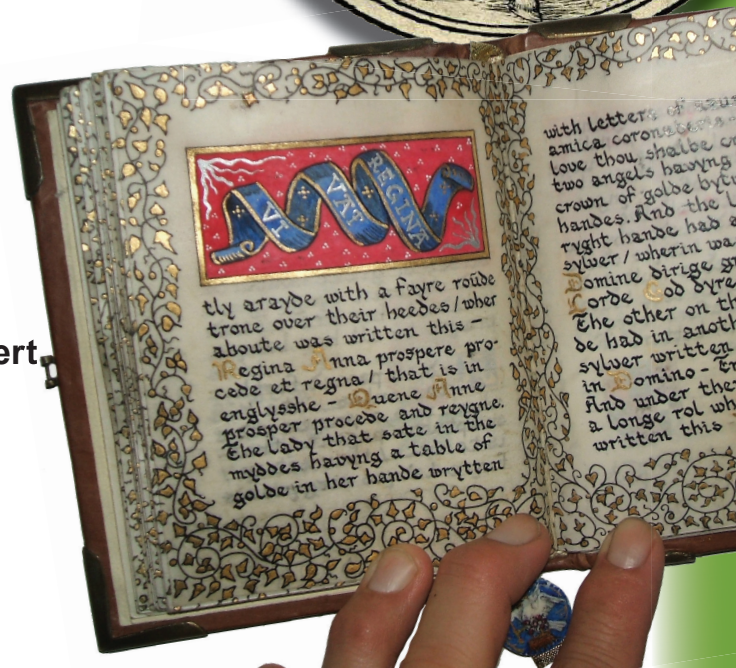 ert.
VI
VAT
REGINA
tly arayde with a fayre roūde
trone over their heedes/wher
aboute was written this –
Regina Anna prospere pro-
cede et regna/ that is in
englysshe – Quene Anne
prosper procede and reygne.
The lady that sate in the
myddes havyng a table of
golde in her hande wrytten
with letters of
amica coronaberis
love thou shalbe
two angels havyng
crown of golde
handes. And the
ryght hande had
sylver/ wherin
Domine dirige
Lorde God
The other on
de had in
sylver written
in Domino –
And under
a longe rol
written this